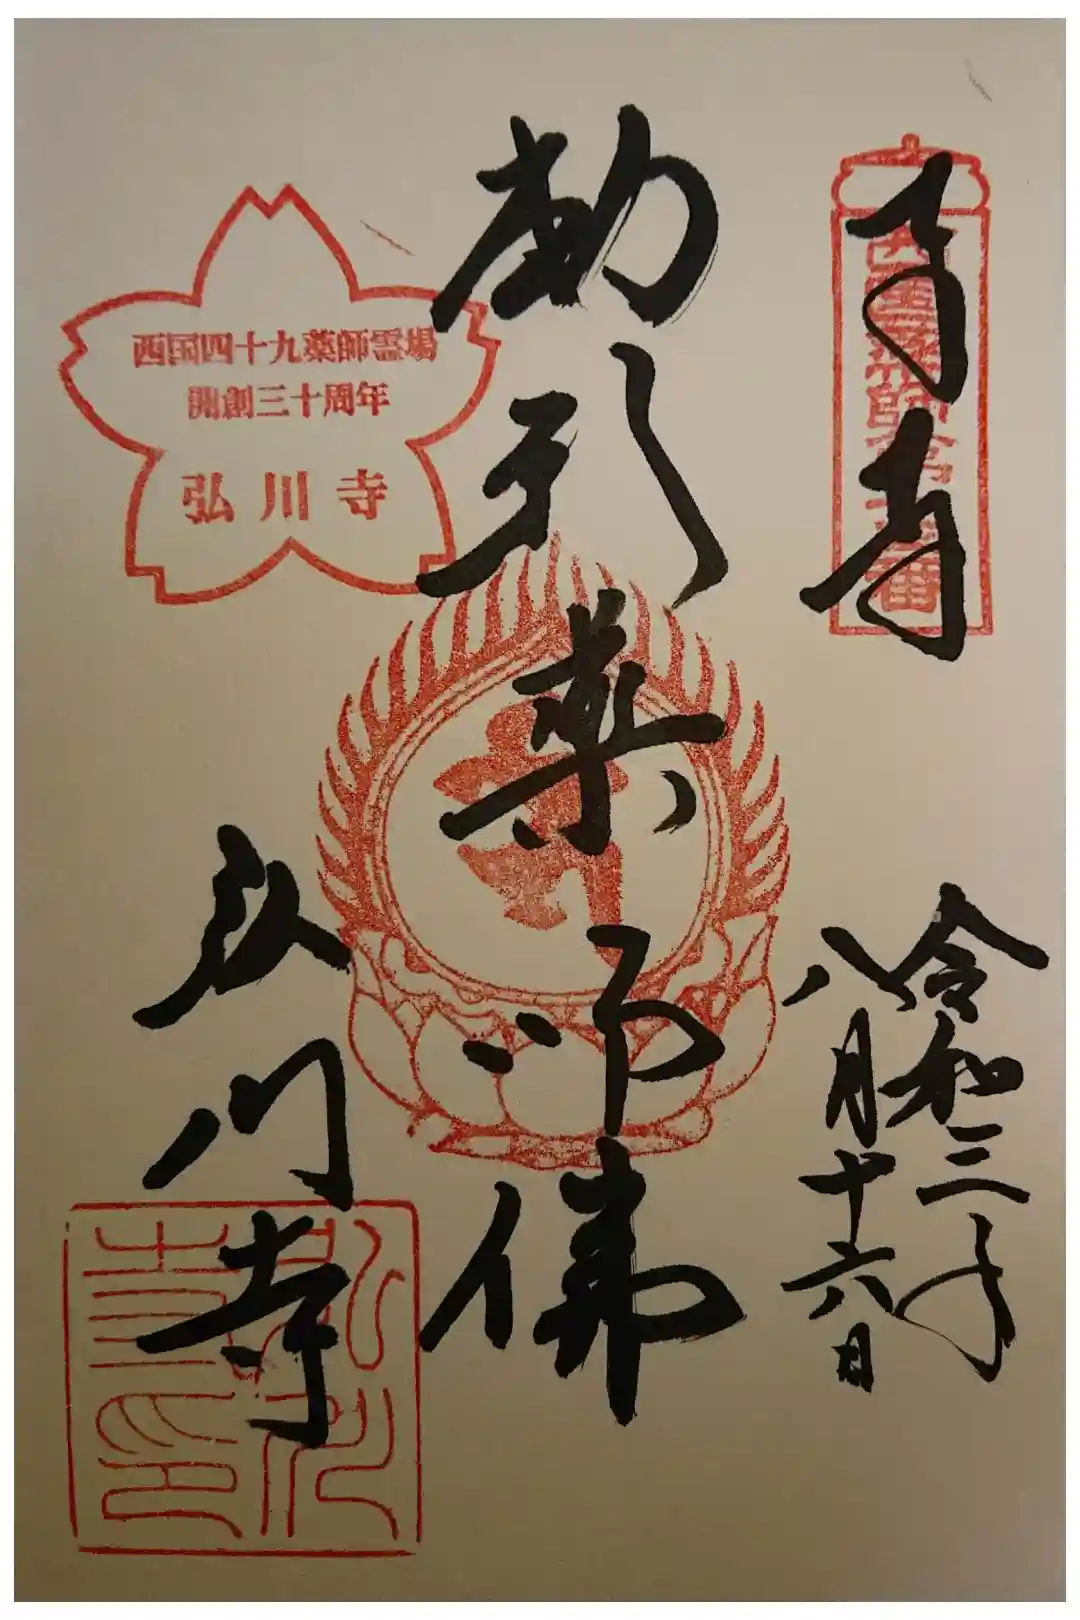 令和三年
八月十六日
薬師佛
弘川寺
西国四十九薬師霊場
開創三十周年
弘川寺
弘川
寺印